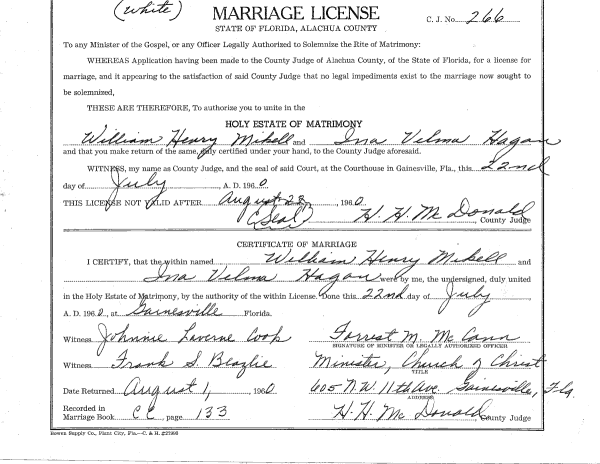 (White)
MARRIAGE LICENSE
C. J. No. 266
STATE OF FLORIDA, ALACHUA COUNTY
To any Minister of the Gospel, or any Officer Legally Authorized to Solemnize the Rite of Matrimony:
WHEREAS Application having been made to the County Judge of Alachua County, of the State of Florida, for a license for
marriage, and it appearing to the satisfaction of said County Judge that no legal impediments exist to the marriage now sought to
be solemnized,
THESE ARE THEREFORE, To authorize you to unite in the
HOLY ESTATE OF MATRIMONY
William Henry Mikell and Ina Velma Hagan
and that you make return of the same, duly certified under your hand, to the County Judge aforesaid.
WITNESS, my name as County Judge, and the seal of said Court, at the Courthouse in Gainesville, Fla., this 22nd
day of July A. D. 1960
THIS LICENSE NOT VALID AFTER August 22, 1960
(Seal) H. H. McDonald, County Judge
CERTIFICATE OF MARRIAGE
I CERTIFY, that the within named William Henry Mikell and
Ina Velma Hagan were by me, the undersigned, duly united
in the Holy Estate of Matrimony, by the authority of the within License. Done this 22nd day of July,
A. D. 1960, at Gainesville Florida.
Witness Johnnie Laverne Cook Forrest M. McCann
SIGNATURE OF MINISTER OR LEGALLY AUTHORIZED OFFICER
Witness Frank S. Beazlie Minister, Church of Christ
TITLE
Date Returned August 1, 1960 605 N.W. 11th Ave. Gainesville, Fla.
ADDRESS
Recorded in
Marriage Book CC, page 133 H. H. McDonald, County Judge
Rowen Supply Co., Plant City, Fla.—C. & H. #27998